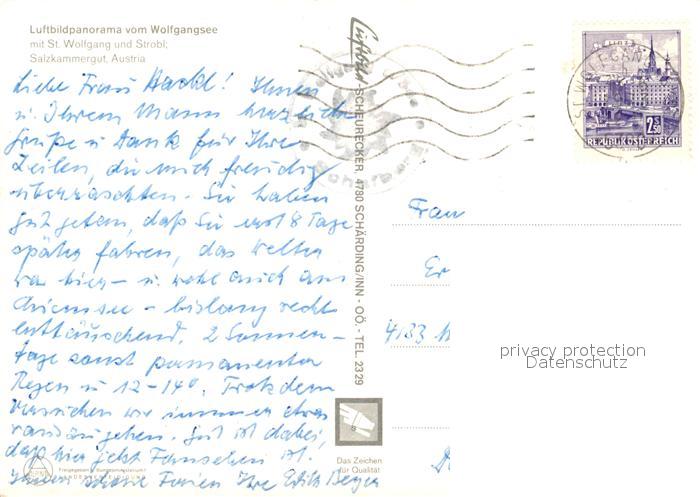 Luftbildpanorama vom Wolfgangsee
mit St. Wolfgang und Strobl;
Salzkammergut, Austria
Liebe Frau Hackl! Ihnen
u. Ihrem Mann herzliche
Grüße u. Dank für Ihre
Zeilen, die mich freudig
überraschten. Sie haben
gut getan, daß Sie erst 8 Tage
später fahren, das Wetter
war hier – u. wohl auch am
Chiemsee – bislang recht
enttäuschend. 2 Sonnen-
tage sonst permanenter
Regen u 12–14°. Trotzdem
versuchen wir immer etwas
rauszugehen. Gut ist dabei,
daß hier jetzt Fernsehen ist.
Ihnen schöne Ferien Ihre Edith Berger
Luftbild SCHEURECKER, 4780 SCHÄRDING/INN - OÖ. - TEL. 2329
Das Zeichen
für Qualität
LINZ
2.50
REPUBLIK ÖSTERREICH
ST. WOLFGANG
Frau
Er
4133
privacy protection
Datenschutz